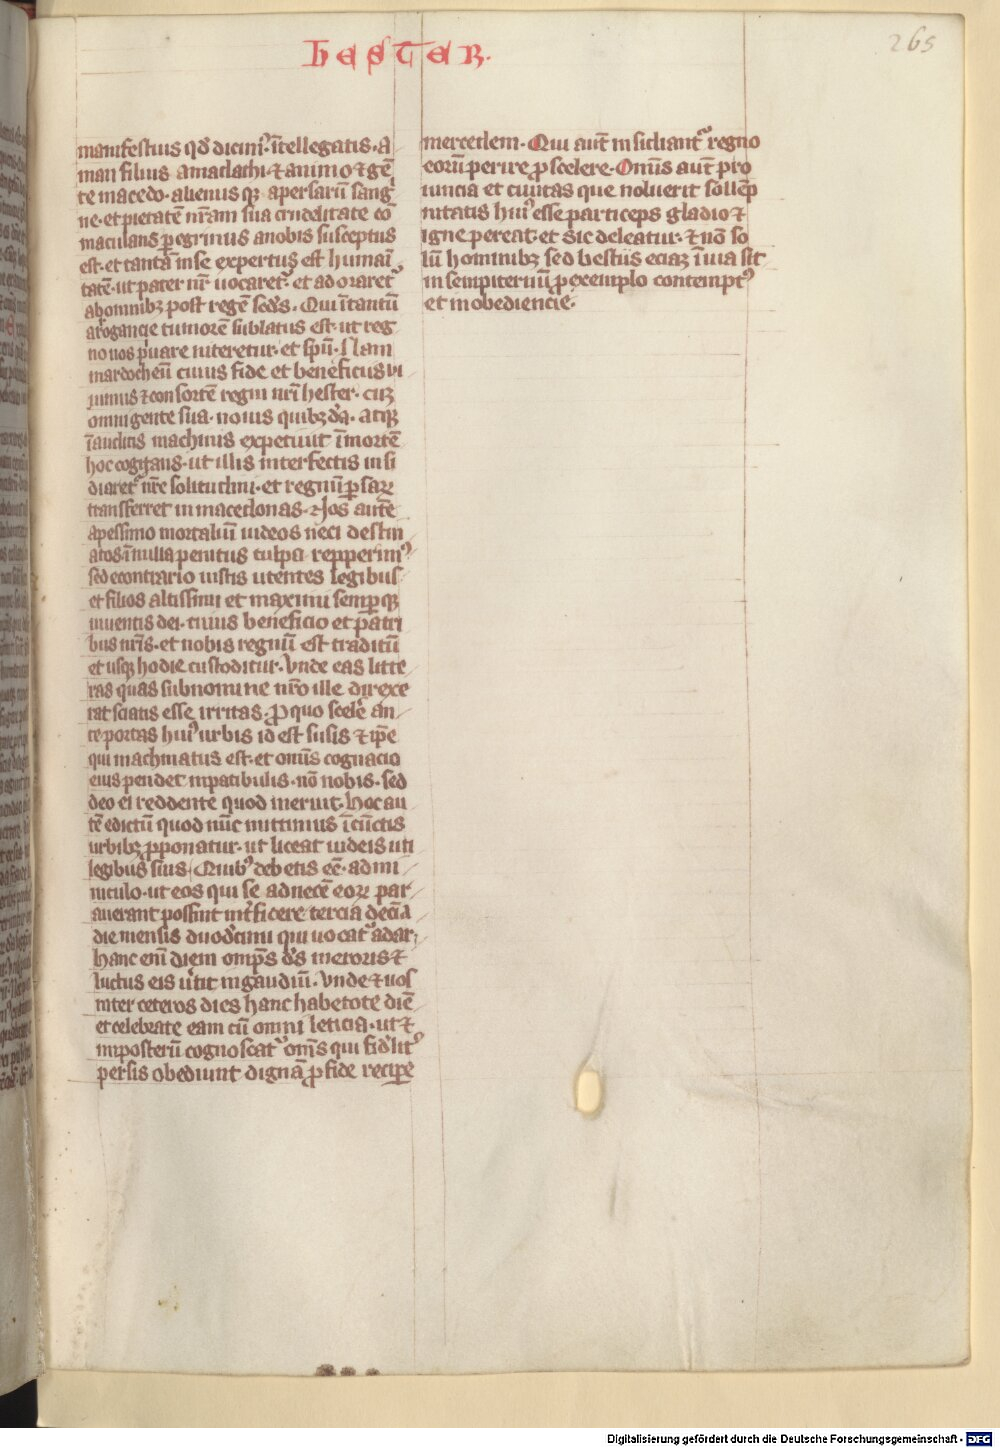 hester.
265
manifestius qd̄ dicim᷒ īntellegatis · a
man filius amadachi · ⁊ animo ⁊ gē
te macedo · alienus qꝫ apersarū sang
ne · et pietatē nr̄am sua crudelitate cō
maculans ꝑegrinus anobis susceptus
est · et tantā inse expertus est humai
tatē · ut pater nr̄ uocaret᷑ · et adoraret᷑
ahominibꝫ post regē scd̄s · Qui ītantū
arogancie tumorē sublatus est · ut reg
no nos pͥuare niteretur · et spū · Nam
mardocheū cuius fide et beneficiis vi
uimus ⁊ consortē regni nr̄i hester · cuꝫ
omni gente sua · nouis quibꝫdā · atqꝫ
īauditis machinis expetiuit ī mortē
hoc cogitans · ut illis interfectis insi
diaret᷑ nr̄e solitudini · et regnū ꝑsaꝝ
transferret in macedonas · Nos autē
apessimo mortaliū iudeos neci destin
atos ī nulla penitus culpa repperim᷒
sed econtrario iustis utentes legibus
et filios altissimi et maximi semꝑqꝫ
uiuentis dei · cuius beneficio et patri
bus nr̄is · et nobis regnū est traditū
et usqꝫ hodie custoditur · Vnde eas litte
ras quas subnomine nr̄o ille direxe
rat sciatis esse irritas · Pro quo scelē an
te portas hui᷒ urbis id est susis ⁊ ip̄e
qui machinatus est · et omīs cognacio
eius pendet inpatibulis · nō nobis · sed
deo ei reddente quod meruit · Hoc au
tē edictū quod nūc mittimus ī cūctis
urbibꝫ ꝓponatur · ut liceat iudeis uti
legibus suis · Quib᷒ debetis eē · admi
niculo · ut eos qui se adnecē eoꝝ par
auerant possint int̄ficere tercia decīa
die mensis duodēcimi qui uocat᷑ adar ·
hanc enī diem omp̄s d̄s meroris ⁊
luctus eis u̓tit ingaudiū · Vnde ⁊ uos
inter ceteros dies hanc habetote diē
et celebrate eam cū omni leticia · ut ⁊
inposterū cognoscat᷑ om̄s qui fid̓lit᷑
persis obediunt dignā ꝓ fide recipe
mercedem · Qui aut̄ insidiant᷑ regno
eorū perire ꝓ scelere · Omīs aut̄ pro
uincia et ciuitas que noluerit sollēp
nitatis hui᷒ esse particeps gladio ⁊
igne pereat · et sic deleatur · ⁊ nō so
lū hominibꝫ sed bestiis eciaꝫ inuia sit
in sempiternū ꝓ exemplo contempt᷒
et inobediencie ·
Digitalisierung gefördert durch die Deutsche Forschungsgemeinschaft - DFG